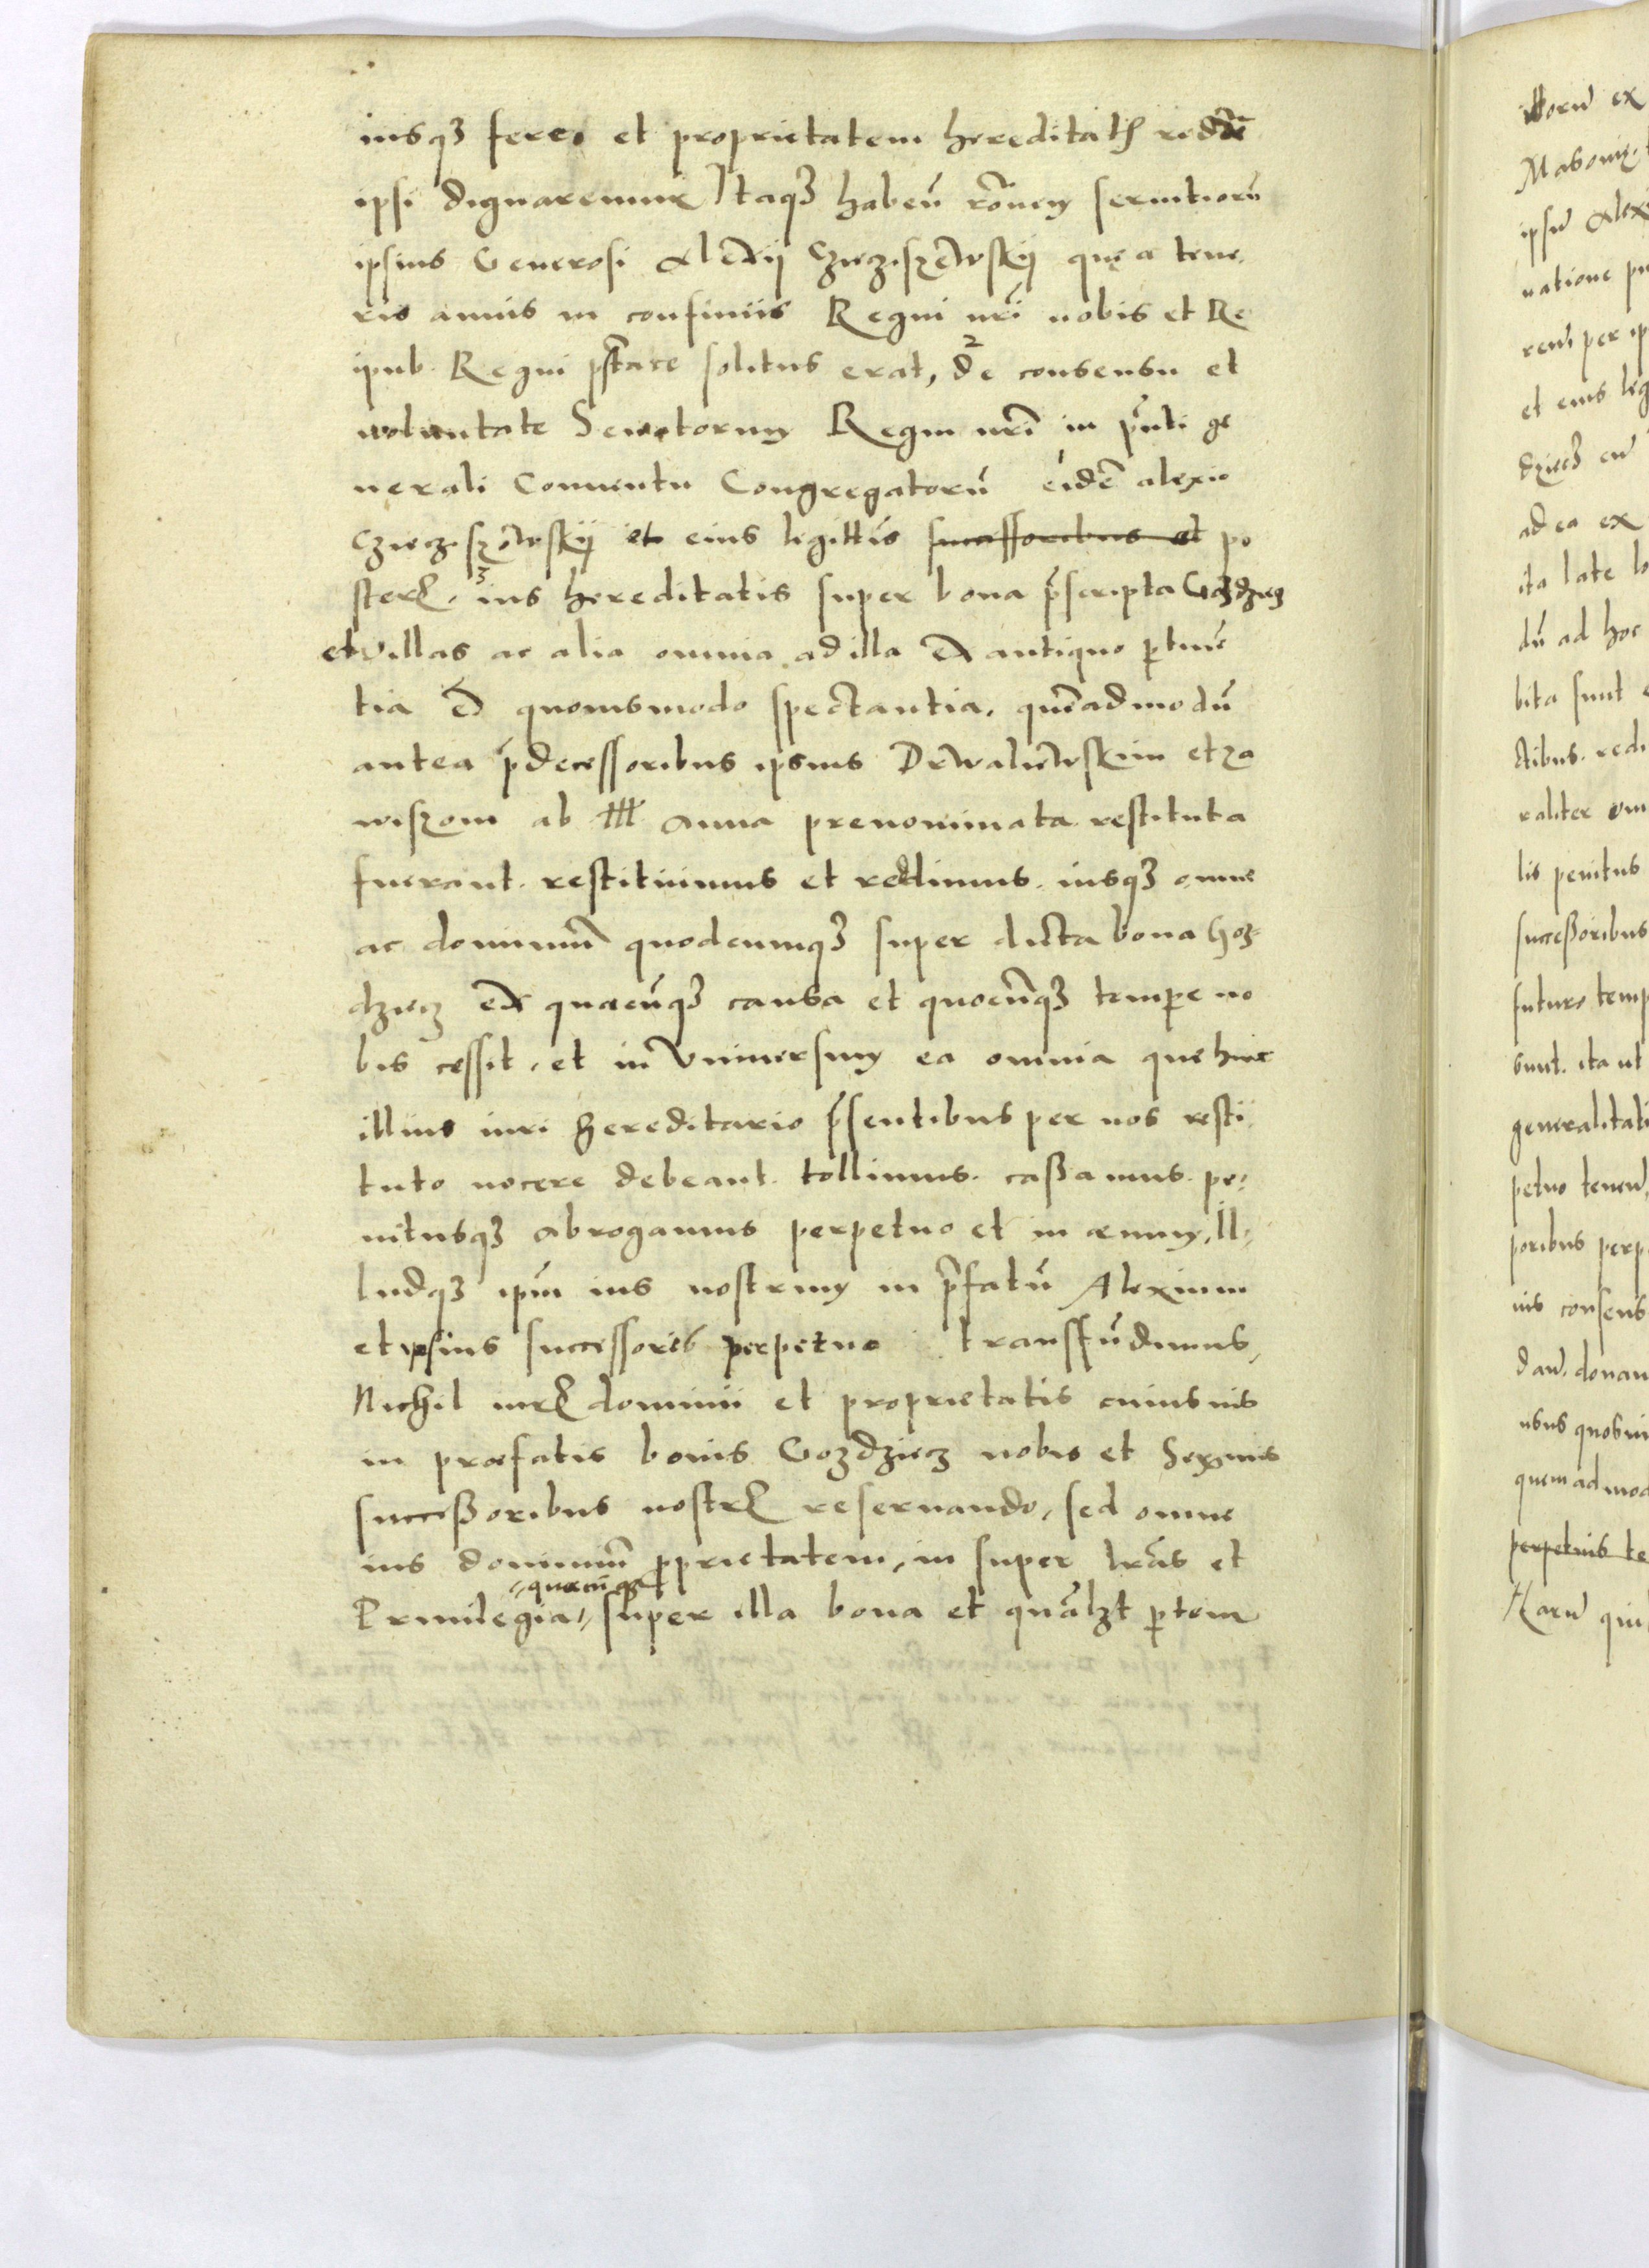 iusq3 fereo et proprietatem hereditatis reddere
ipsi dignaremur Itaq3 habeñ rõnem seruitiorũ
ipsius Generosi Alexij Cziecziszewskij quę a tene
ris annis in confiniis Regni nr̃i nobis et Re
ipub. Regni pr̃stare solitus erat, 2 de consensu et
voluntate Senatorum Regni nr̃i in pñti ge
nerali Conuentu Congregatorũ eidẽ alexio
Cziecziszowskij et eius legittĩs successoribus et po
steris. 3 ius hereditatis super bona p̃scripta Gozdziecz
et villas ac alia omnia ad illa ex antiquo ptinẽ
tia et quouismodo spectantia, quẽadmodũ
antea p̃decessoribus ipsius Drwalewskim et za
wiszom ab Ill Anna prenominata restituta
fuerant. restituimus et reddimus. iusq3 omne
ac dominiũ quodcumq3 super dicta bona Goz-
dziecz ex quacũq3 causa et quocũq3 tempe no
bis cessit, et in Vniuersum ea omnia que huic
illius iuri hereditario p̃sentibus per nos resti
tuto nocere debeant. tollimus. cassamus. pe-
nitusq3 abrogamus perpetuo et in aeuum, Il-
ludq3 ipm̃ ius nostrum in p̃fatũ Alexium
et ipsius successores perpetuo transfũdimus,
Nichil iuris dominii et proprietatis cuiusuis
in praefatis bonis Gozdziecz nobis et Serenis
successoribus nostris reseruando, sed omne
ius dominiũ pprietatem, in super lr̃as et
quaecũq3
Priuilegia, super illa bona et quãlzt ptem
illorũ ex
Masouię,
ipsũ Alex
natione pu
rem per ip
et eius leg
Dziecz cũ
ad ea ex
ita late lo
dũ ad hoc
bita sunt
ctibus. redi
raliter om
lis penitus
successoribus
futuro temp
sunt. ita ut
generalitati
petuo tenen
poribus perp
nis consens
dan. donan
usus quosui
quemadmod
perpetuis te
Harũ qui